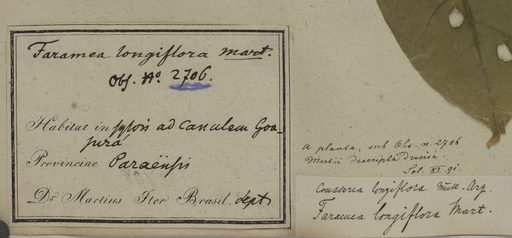 Faramea longiflora Mart.
Obs. No. 2706.
Habitat in sylvis ad canalem Goa-
pura
Provinciae Paraënsis
Dr Martius Iter Brasil. dept
a planta, sub Obs. n. 2706
Martii descripta diversa.
Coussarea longiflora Müll. Arg.
Faramea longiflora Mart.